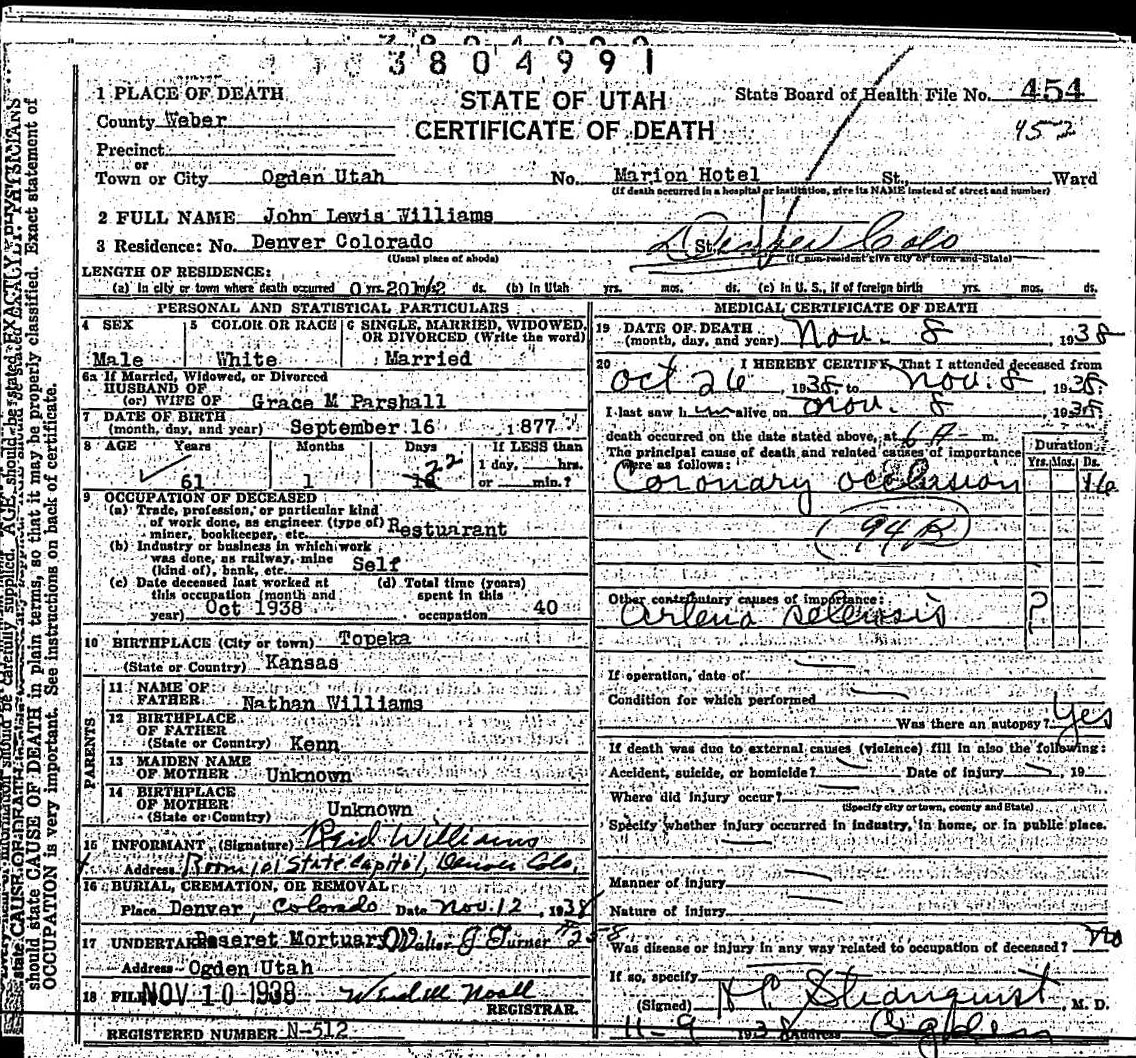 3804991
1 PLACE OF DEATH
STATE OF UTAH
State Board of Health File No. 454
County Weber
CERTIFICATE OF DEATH
452
Precinct
or
Town or City Ogden Utah No. Marion Hotel St., Ward
(If death occurred in a hospital or institution, give its NAME instead of street and number)
2 FULL NAME John Lewis Williams
3 Residence: No. Denver Colorado St. Denver Colo
(Usual place of abode) (If non-resident give city or town and State)
LENGTH OF RESIDENCE:
(a) In city or town where death occurred 0 yrs. ds. (b) In Utah yrs. mos. ds. (c) In U. S., if of foreign birth yrs. mos. ds.
PERSONAL AND STATISTICAL PARTICULARS
4 SEX 5 COLOR OR RACE 6 SINGLE, MARRIED, WIDOWED, OR DIVORCED (Write the word)
Male White Married
6a If Married, Widowed, or Divorced
HUSBAND OF
(or) WIFE OF Grace M Parshall
7 DATE OF BIRTH
(month, day, and year) September 16 1877
8 AGE Years Months Days If LESS than
22 1 day, hrs.
61 1 or min.?
9 OCCUPATION OF DECEASED
(a) Trade, profession, or particular kind
of work done, as engineer (type of)
miner, bookkeeper, etc. Restuarant
(b) Industry or business in which work
was done, as railway, mine
(kind of), bank, etc. Self
(c) Date deceased last worked at (d) Total time (years)
this occupation (month and spent in this
year) Oct 1938 occupation 40
10 BIRTHPLACE (City or town) Topeka
(State or Country) Kansas
PARENTS
11 NAME OF
FATHER Nathan Williams
12 BIRTHPLACE
OF FATHER
(State or Country) Kenn
13 MAIDEN NAME
OF MOTHER Unknown
14 BIRTHPLACE
OF MOTHER
(State or Country) Unknown
15 INFORMANT (Signature) Reid Williams
Address Room 101 State Capitol, Denver Colo.
16 BURIAL, CREMATION, OR REMOVAL
Place Denver, Colorado Date Nov. 12, 1938
17 UNDERTAKER Deseret Mortuary Walter J Turner #25-8
Address Ogden Utah
18 FILED NOV 10 1938 Noall
REGISTRAR.
REGISTERED NUMBER N-512
MEDICAL CERTIFICATE OF DEATH
19 DATE OF DEATH
(month, day, and year) Nov. 8, 1938
20 I HEREBY CERTIFY, That I attended deceased from
Oct 26 1938 to Nov. 8 1938
I last saw him alive on Nov. 8, 1938
death occurred on the date stated above, at 6 A m.
The principal cause of death and related causes of importance
were as follows:
Duration
Yrs. Mos. Ds.
Coronary occlusion 16
94B
Other contributory causes of importance:
?
If operation, date of
Condition for which performed
Was there an autopsy? Yes
If death was due to external causes (violence) fill in also the following:
Accident, suicide, or homicide? Date of injury , 19
Where did injury occur?
(Specify city or town, county and State)
Specify whether injury occurred in industry, in home, or in public place.
Manner of injury
Nature of injury
Was disease or injury in any way related to occupation of deceased? No
If so, specify
(Signed) Stranquist, M. D.
11-9 1938 Address Ogden
should state CAUSE OF DEATH in plain terms, so that it may be properly classified. Exact statement of
OCCUPATION is very important. See instructions on back of certificate.